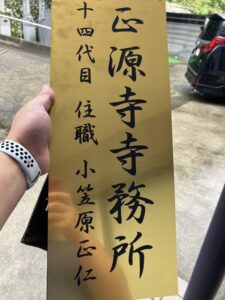 正源寺寺務所
十四代目 住職 小笠原正仁